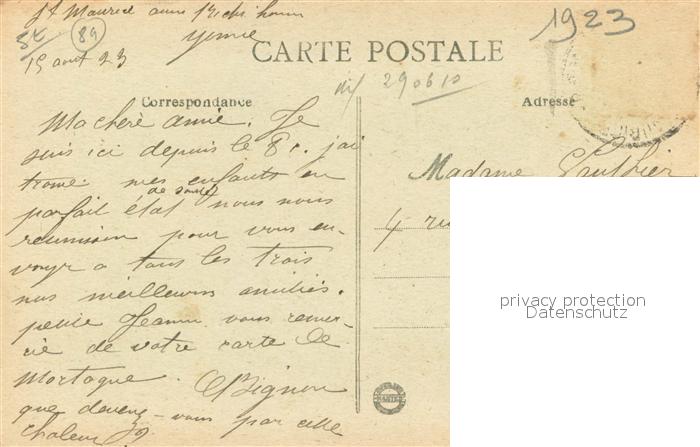 St Maurice aux Riches hommes
Yonne
1923
St 89
15 aout 23
CARTE POSTALE
290610
Correspondance
Adresse
Ma chère amie. Je
suis ici depuis le 8. j'ai
trouvé mes enfants en
parfait état de santé nous nous
reunisson pour vous en-
voyr a tous les trois
nos meilleurs amitiés.
petite Jeanne vous remer-
cie de votre carte de
Mortagne. Bignon
que devenz-vous par cette
chaleur
Madame Gauthier
4 ru
privacy protection
Datenschutz